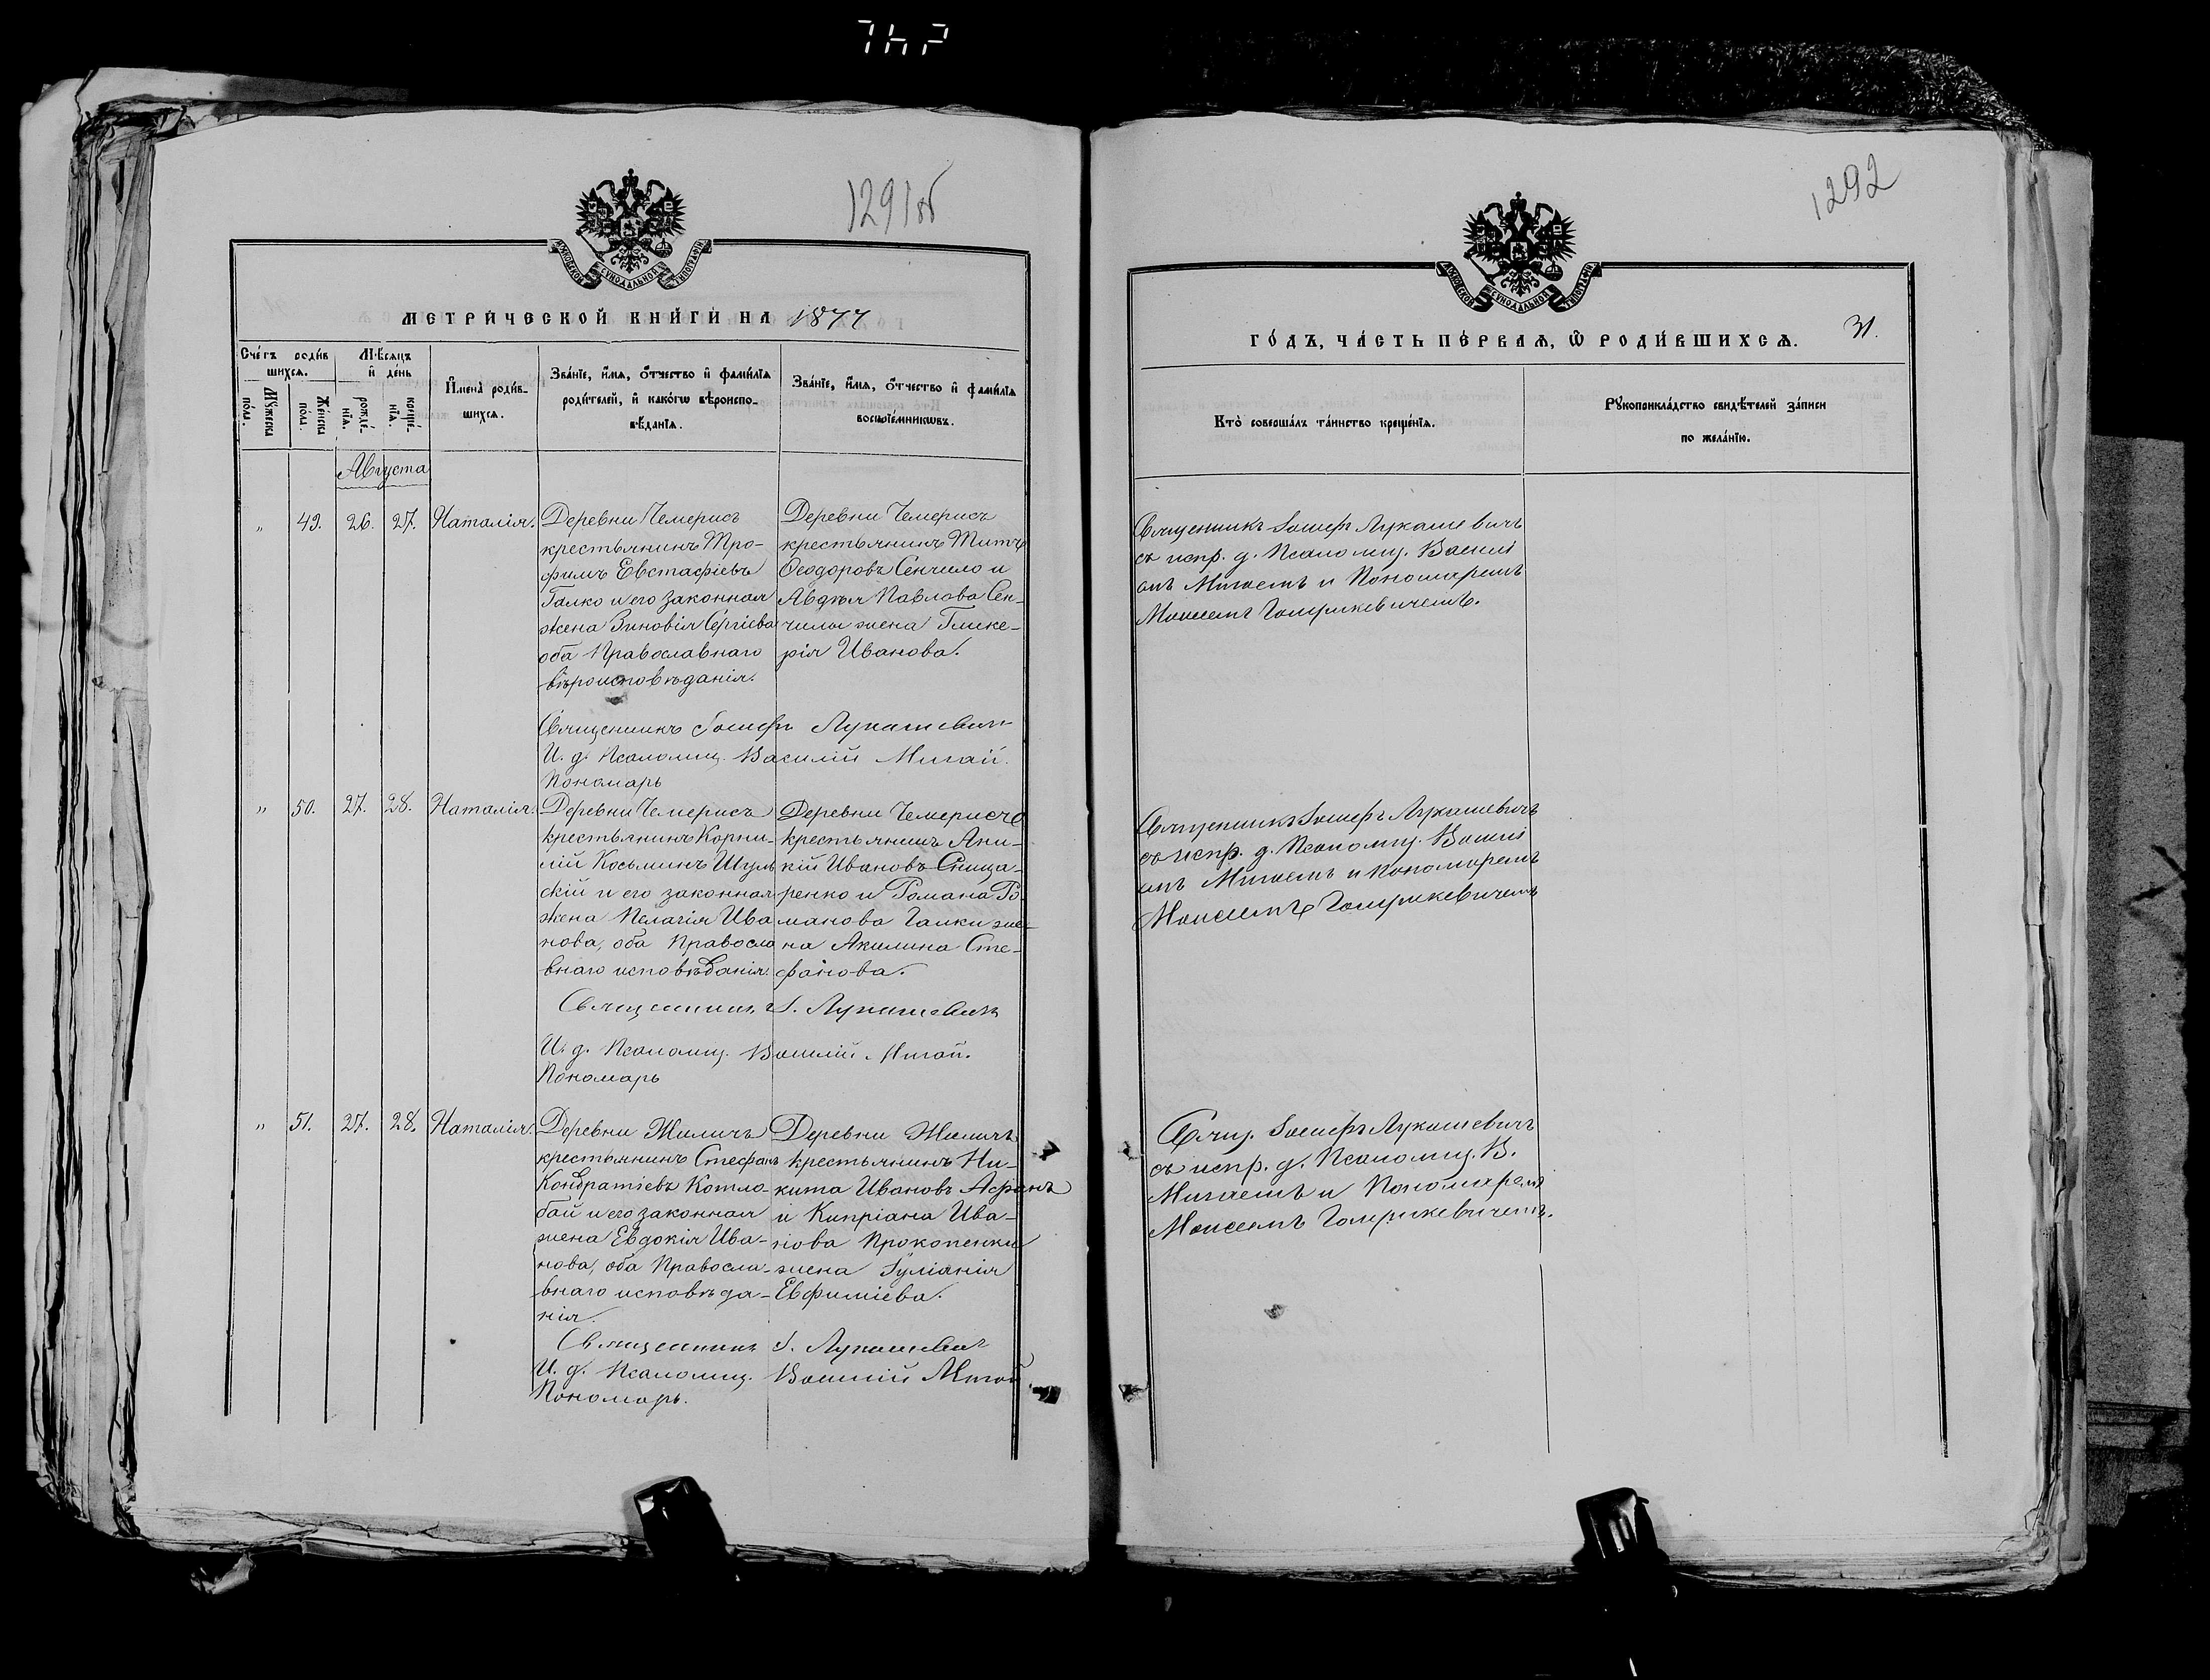 1291об
МЕТРИ́ЧЕСКОЙ КНИ́ГИ НА 1877
Сче́тъ роди́в
шихсѧ.
Мѣ́сѧцъ
и҆ де́нь
Мꙋ́жеска
по́ла.
Же́нска
по́ла.
рожде́
нїѧ.
креще́
нїѧ.
И҆мена̀ роди́в
шихсѧ.
Зва́нїе, и҆́мѧ, ѻ҆́тчество и҆ фами́лїѧ
роди́телей, и҆ како́гѡ вѣроиспо
вѣ́данїѧ.
Зва́нїе, и҆́мѧ, ѻ҆́тчество и҆ фами́лїѧ
воспрїе́мникѡвъ.
Августа
„ 49. 26. 27. Наталія.
Деревни Чемерисъ
крестьянинъ Тро-
фимъ Евстафіевъ
Галко и его законная
жена Зиновія Сергіева
оба Православнаго
вѣроисповѣданія.
Деревни Чемерисъ
крестьянинъ Титъ
Ѳеодоровъ Сенчило и
Авдѣя Павлова Сен-
чилы жена Глике-
рія Иванова.
Священникъ Іосифъ Лукашевич
И. д. Псаломщ. Василій Мигай.
Пономарь
„ 50. 27. 28. Наталія.
Деревни Чемерисъ
крестьянинъ Корни-
лій Косьминъ Шуль
скій и его законная
жена Пелагія Ива
нова, оба Правосла
внаго исповѣданія.
Деревни Чемерисъ
крестьянинъ Ани-
кій Ивановъ Сница-
ренко и Романа Ро
манова Галки же-
на Акилина Сте-
фанова.
Священникъ І. Лукашевич
И. д. Псаломщ. Василій Мигай.
Пономарь
„ 51. 27. 28. Наталія.
Деревни Жиличъ
крестьянинъ Стефанъ
Кондратіевъ Котло-
бай и его законная
жена Евдокія Ива-
нова, оба Правосла-
внаго исповѣда-
нія.
Деревни Жиличъ
крестьянинъ Ни-
кита Ивановъ
и Кипріана Ива-
нова Прокопенки
жена Іуліанія
Евфиміева.
Священникъ І. Лукашевич
И. д. Псаломщ. Василій Мигай
Пономарь.
1292
ГО́ДЪ, ЧА́СТЬ ПЕ́РВАѦ, Ѽ РОДИ́ВШИХСѦ.
31.
Кто̀ соверша́лъ та́инство креще́нїѧ.
Рꙋкоприкла́дство свидѣ́телей за́писи
по жела́нїю.
Священникъ Іосифъ Лукашевичъ
съ испр. д. Псаломщ. Василі
емъ Мигаемъ и Пономаремъ
Моисеемъ
Священникъ Іосифъ Лукашевичъ
съ испр. д. Псаломщ. Василі
емъ Мигаемъ и Пономаремъ
Моисеемъ
Свящ. Іосифъ Лукашевичъ
съ испр. д. Псаломщ. В.
Мигаемъ и Пономаремъ
Моисеемъ